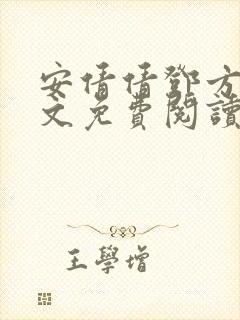 安倩倩鄧方
文免費閱讀
王學增